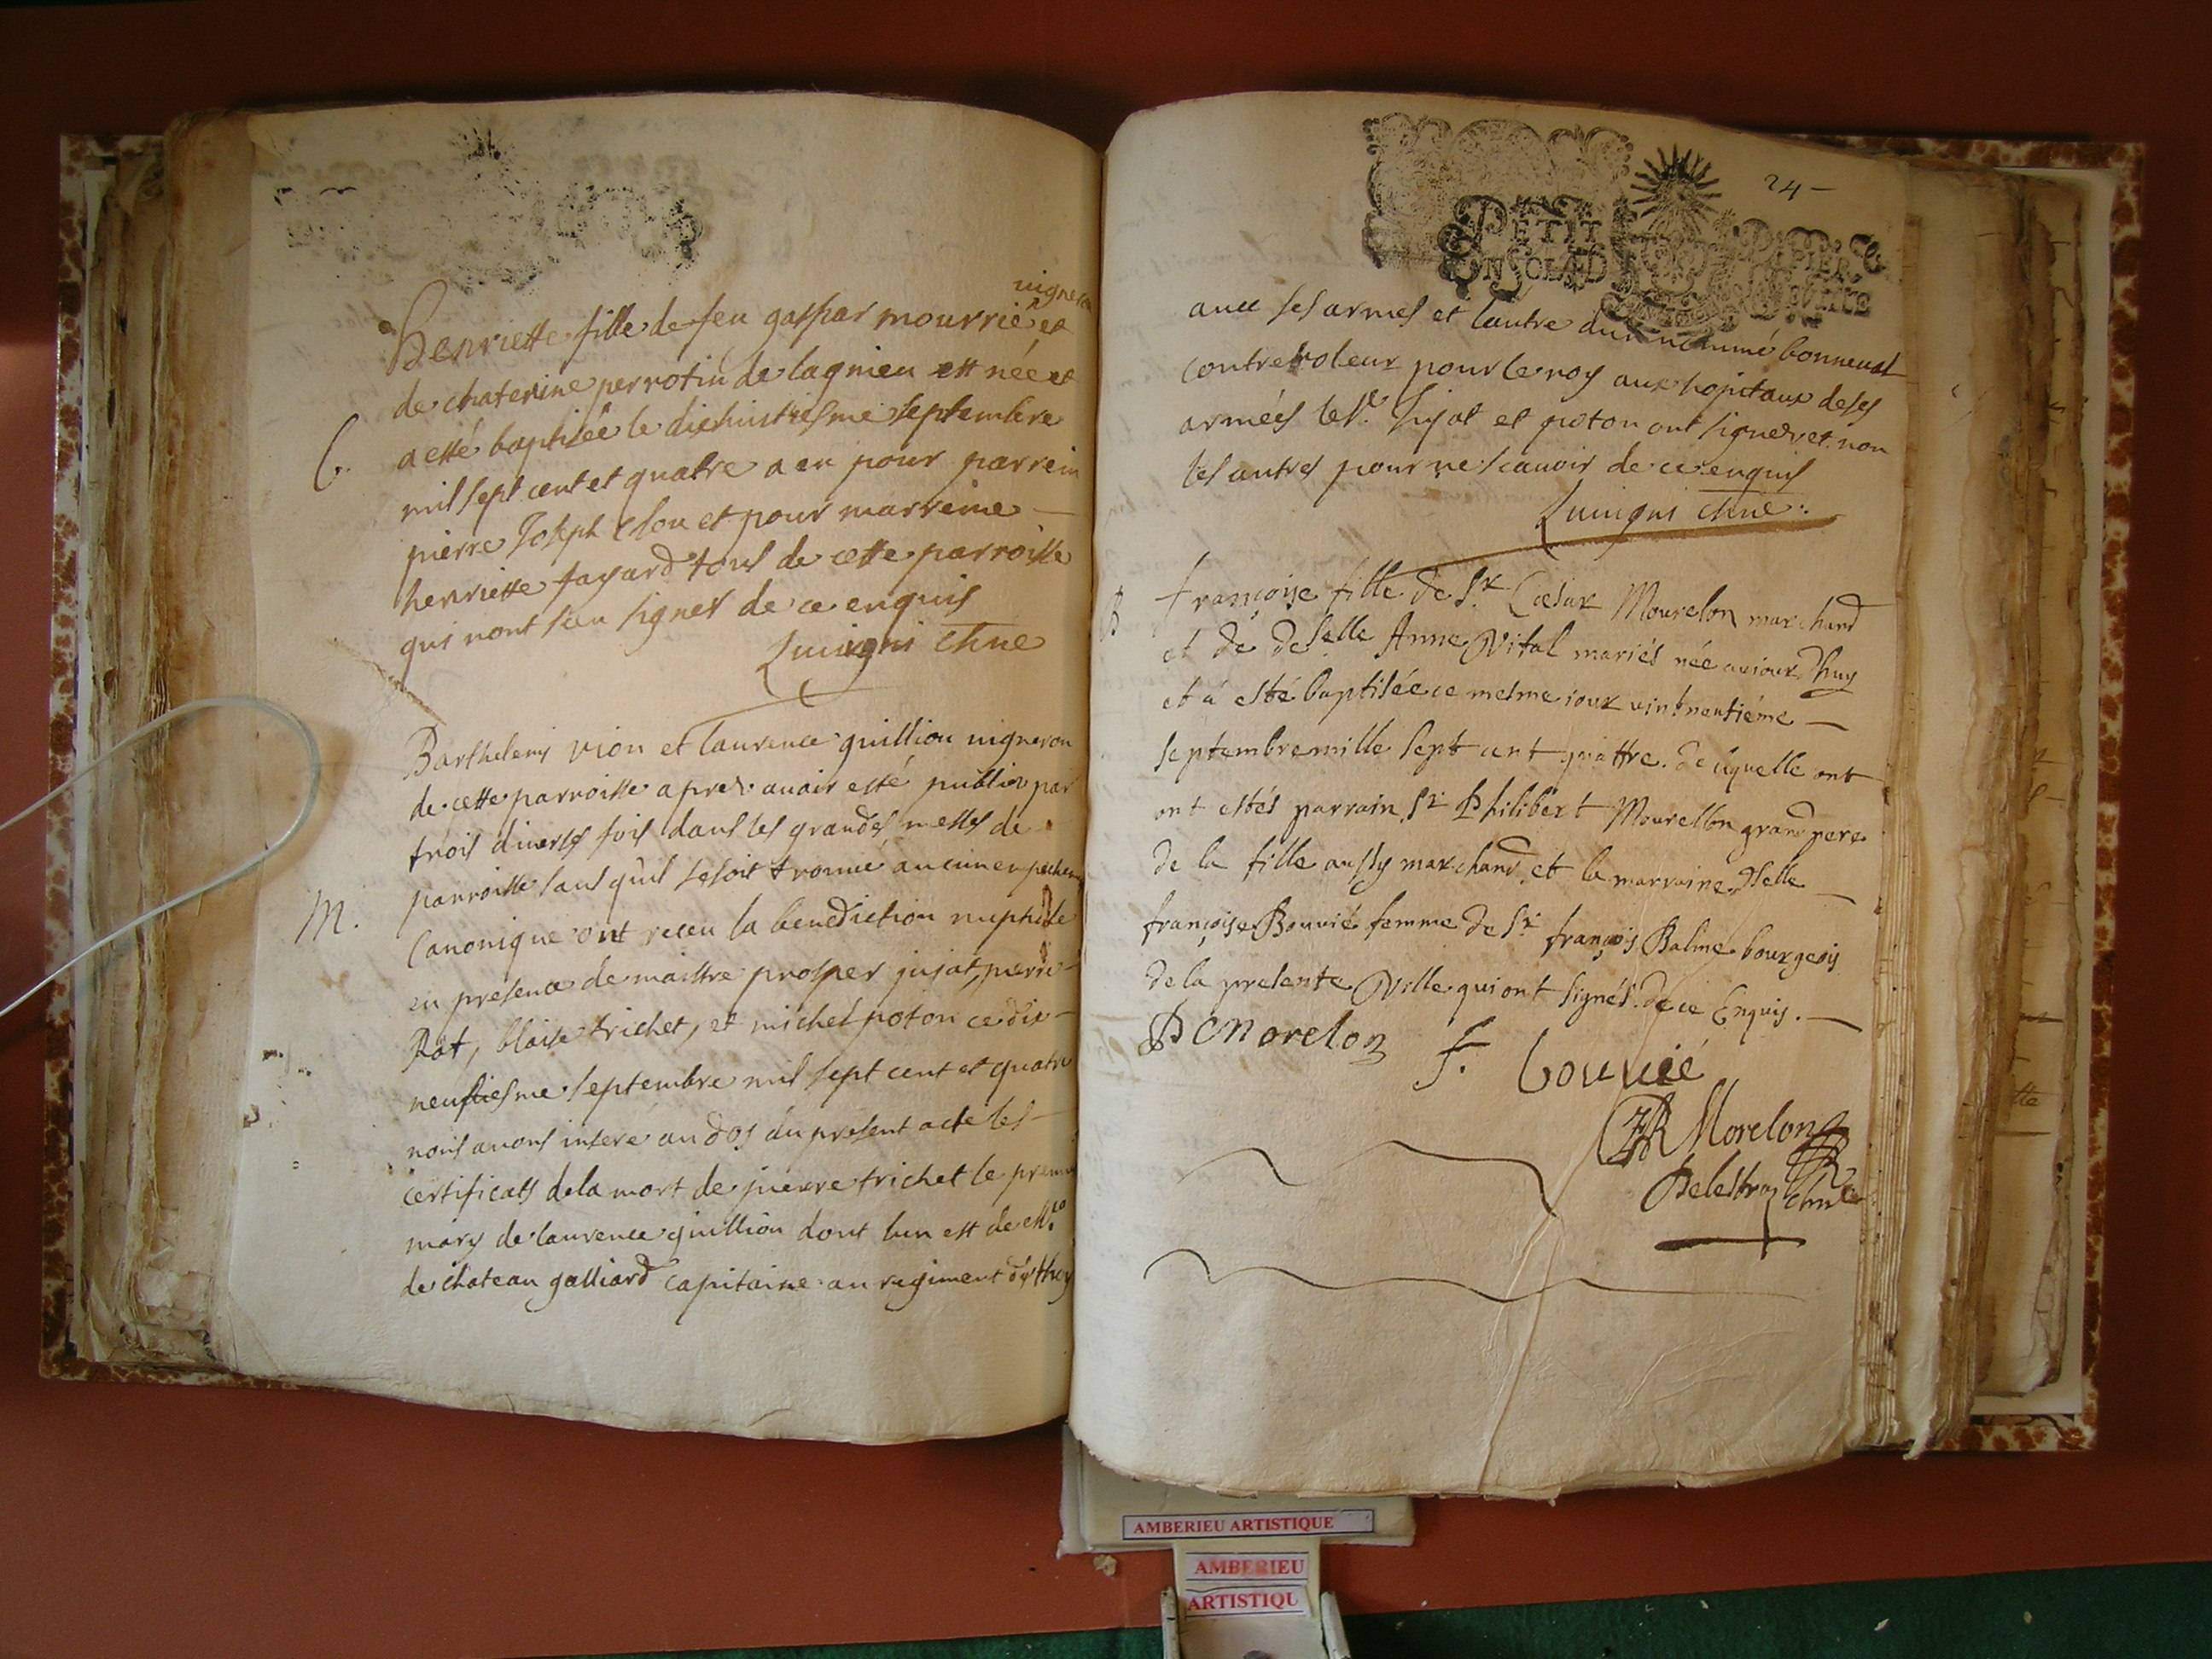 vigneron
henriette fille de feu gaspar mourrié et
de chaterine perrotin de lagnieu est née et
b. a esté baptisée le dixhuictiesme septembre
mil sept cent et quatre a eu pour parrein
pierre Joseph et pour marreine
henriette fayard tous de cette parroisse
qui nont sceu signer de ce enquis
Barthelemy vion et laurence guillion vigneron
de cette parroisse apres avoir esté publiez par
trois diverses fois dans les grandes messes de
parroisse sans quil se soit trouvé aucun
M. Canonique ont receu la benediction nuptiale
en presence de maistre prosper jujat, pierre
Rat, blaise trichet, et michel poton ce dix
neufiesme septembre mil sept cent et quatre
nous avons inseré au dos du present acte les
certificats de la mort de pierre trichet le premier
mary de laurence guillion dont lun est de
de chateau galliard capitaine au regiment
24
PETIT PAPIER
avec ses armes et lautre dun nommé bonneval
controleur pour le roy aux hopitaux de ses
armées le Sr. Jujat et poton ont signez et non
les autres pour ne scavoir de ce enquis
B françoise fille de Sr. Cœsar Mourelon marchand
et de deselle Anne Vital mariés née aujourdhuy
et a esté baptisée ce mesme jour vint neutiéme
septembre mille sept cent quattre. de laquelle ont
ont estés parrain Sr. Philibert Mourellon grand pere
de la fille aussy marchand et la marraine dselle
françoise Bouvié femme de Sr. françois Balme bourgeois
de la presente Ville qui ont signés. de ce Enquis.
P Morelon
f. bouvié
Morelon
Delestra
AMBERIEU ARTISTIQUE
AMBERIEU
ARTISTIQU